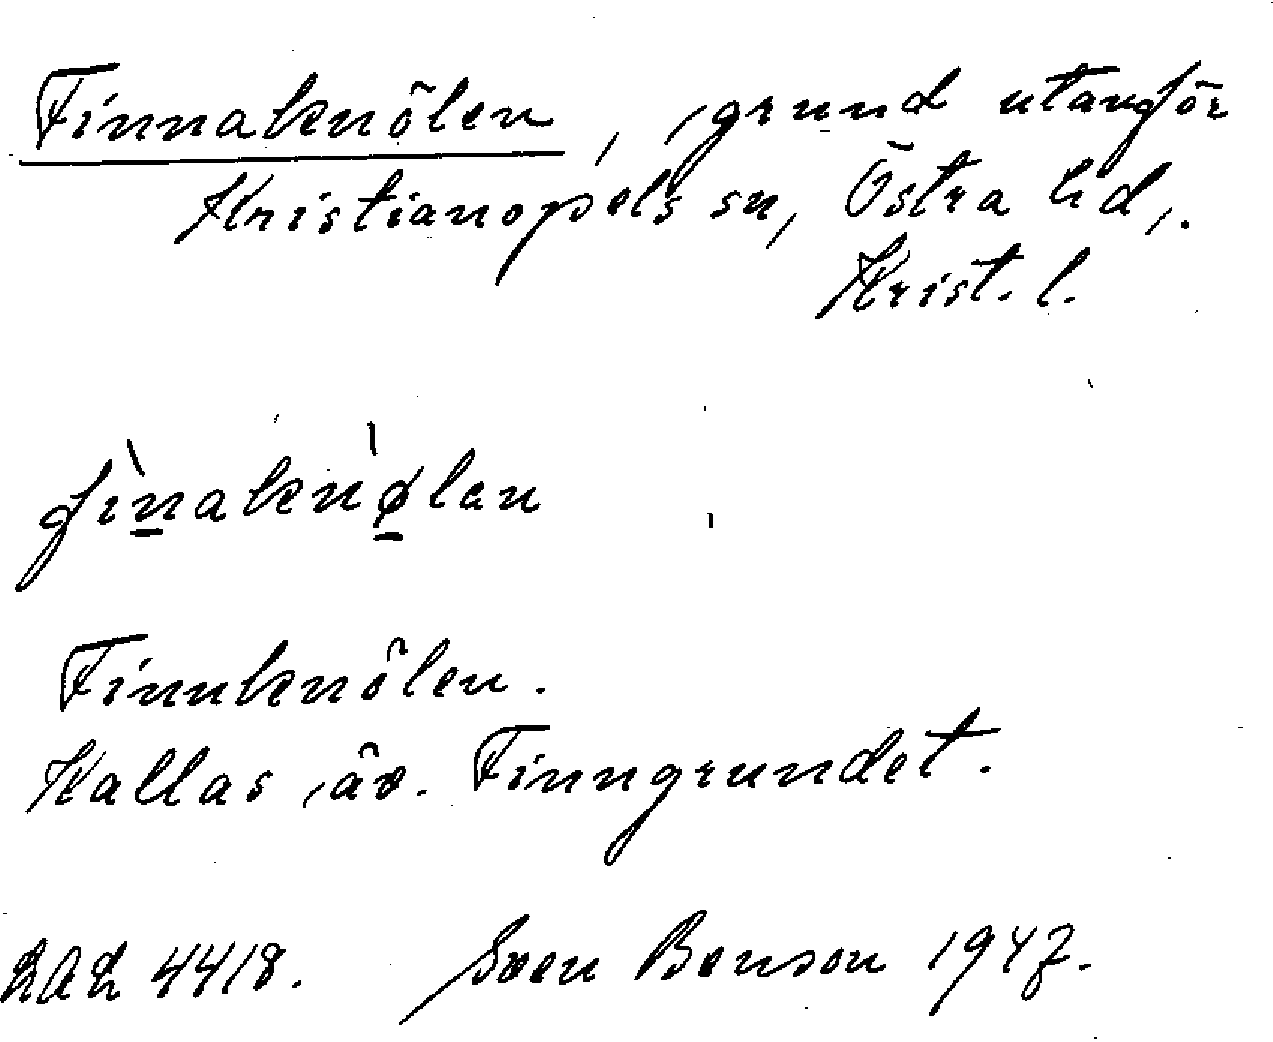 Finnaknölen, grund utanför
Kristianopels sn, Östra hd,.
Krist. l.
fìnaknø̀lan
Finnknölen.
Kallas äv. Finngrundet.
LAL 4418. Sven Benson 1947.